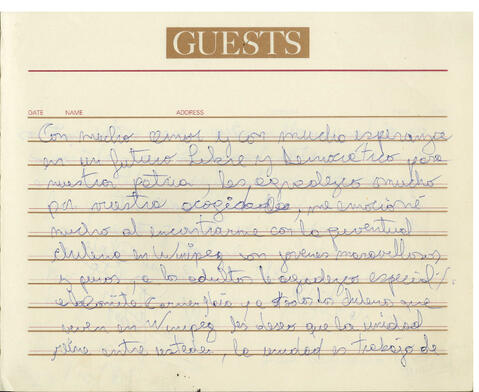 GUESTS
DATE NAME ADDRESS
Con mucho amor y con mucha esperanza
en un futuro Libre y Democrático para
nuestra patria, les agradezco mucho
por vuestra acogida, me emocioné
mucho al encontrarme con la juventud
chilena en Winipeg son jóvenes maravillosos
y puros, a los adultos le agradezco especial/.
al Comité y a todos los chilenos que
viven en Winipeg les deseo que la unidad
reine entre ustedes, la unidad es trabajo de